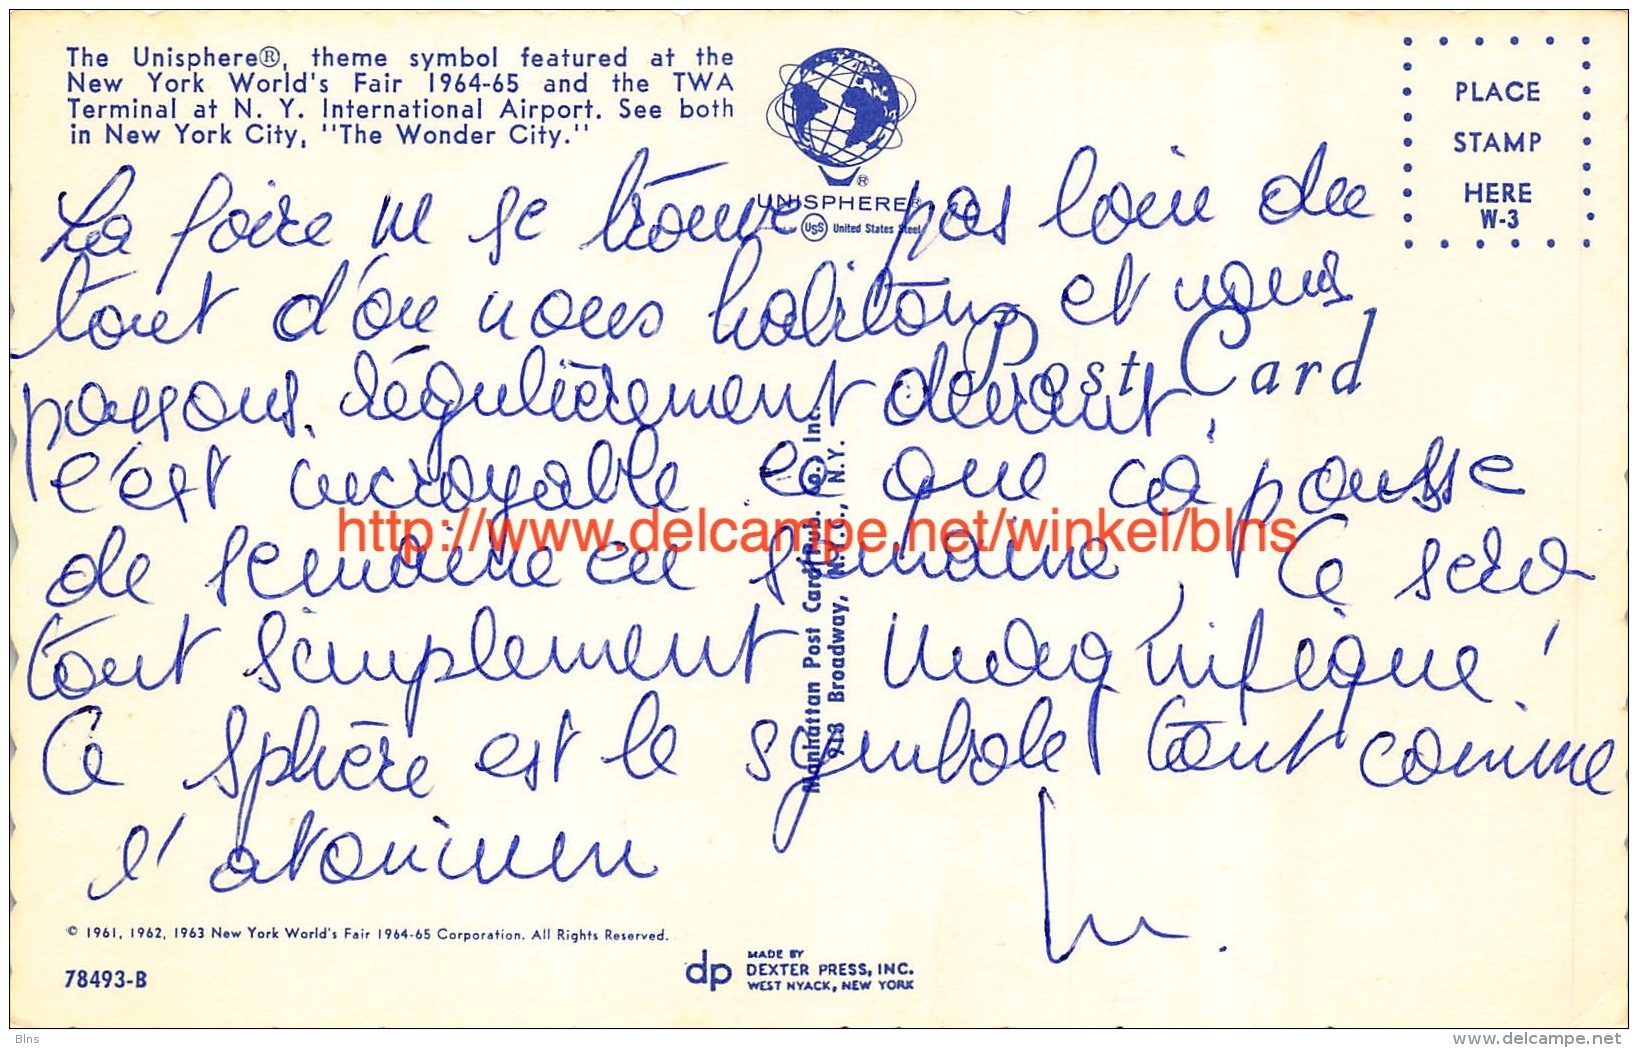 The Unisphere®, theme symbol featured at the
New York World's Fair 1964-65 and the TWA
Terminal at N. Y. International Airport. See both
in New York City, "The Wonder City."
UNISPHERE®
USS United States Steel
PLACE
STAMP
HERE
W-3
Post Card
La foire ne se trouve pas loin du
tout d'où nous habitons et nous
passons régulièrement devant,
c'est incroyable ce que ça pousse
de semaine en semaine, Ce sera
tout simplement magnifique!
Ce sphère est le symbole tout comme
l'atomium
Manhattan Post Card Pub. Co. Inc.
913 Broadway, N.Y.C., N.Y.
http://www.delcampe.net/winkel/blns
© 1961, 1962, 1963 New York World's Fair 1964-65 Corporation. All Rights Reserved.
78493-B
dp MADE BY
DEXTER PRESS, INC.
WEST NYACK, NEW YORK
Blns
www.delcampe.net